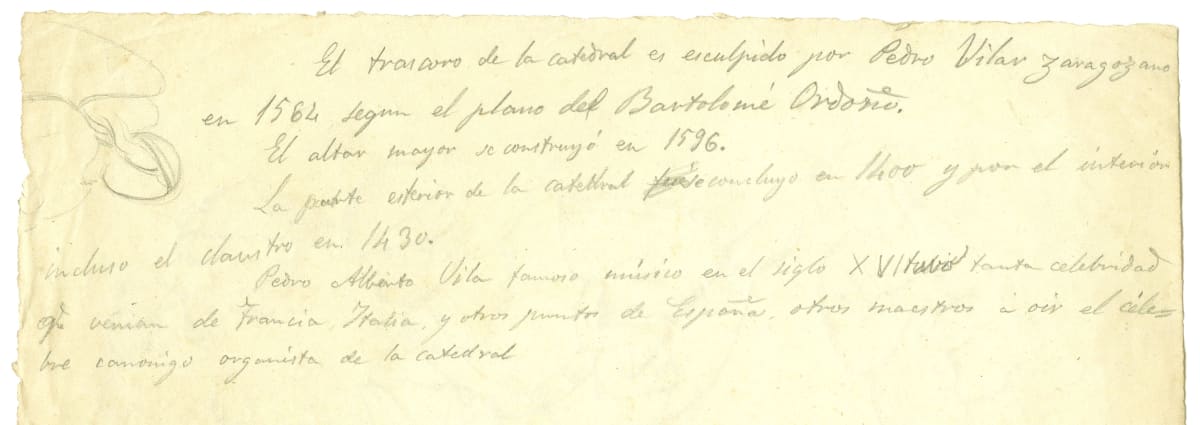 El trascoro de la catedral es esculpido por Pedro Vilar zaragozano
en 1564 segun el plano del Bartolomé Ordoñe.
El altar mayor se construyó en 1596.
La parte esterior de la catedral se concluyo en 1400 y por el interior
incluso el claustro en 1430.
Pedro Alberto Vila famoso músico en el siglo XVI tubo tanta celebridad
qe venian de Francia, Italia, y otros puntos de España, otros maestros á oir el céle=
bre canonigo organista de la catedral